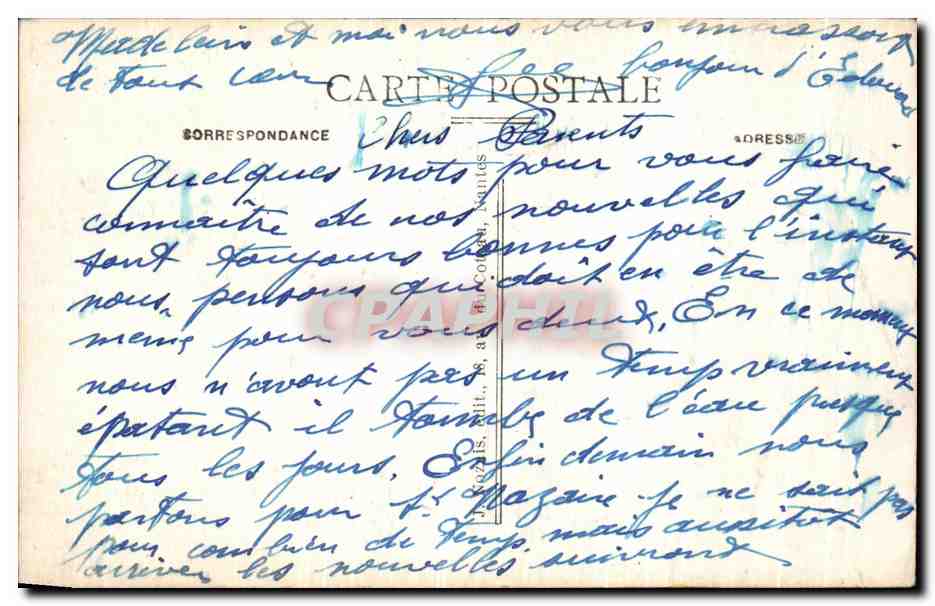 Madelein et moi nous vous embrassons
de tout cœur bonjour d'Edouard
CARTE POSTALE
CORRESPONDANCE
ADRESSE
Chers Parents
Quelques mots pour vous faire
connaître de nos nouvelles qui
sont toujours bonnes pour l'instant
nous pensons qui doit en être de
meme pour vous deux, En ce moment
nous n'avont pas un temp vraiment
épatant il tombe de l'eau presque
tous les jours. Enfin demain nous
partons pour St Nazaire je ne sait pas
pour combien de temp mais aussitot
arriver les nouvelles suivront
J. Nozais, édit., 18, av. du Coteau, Nantes
CPAPHIL